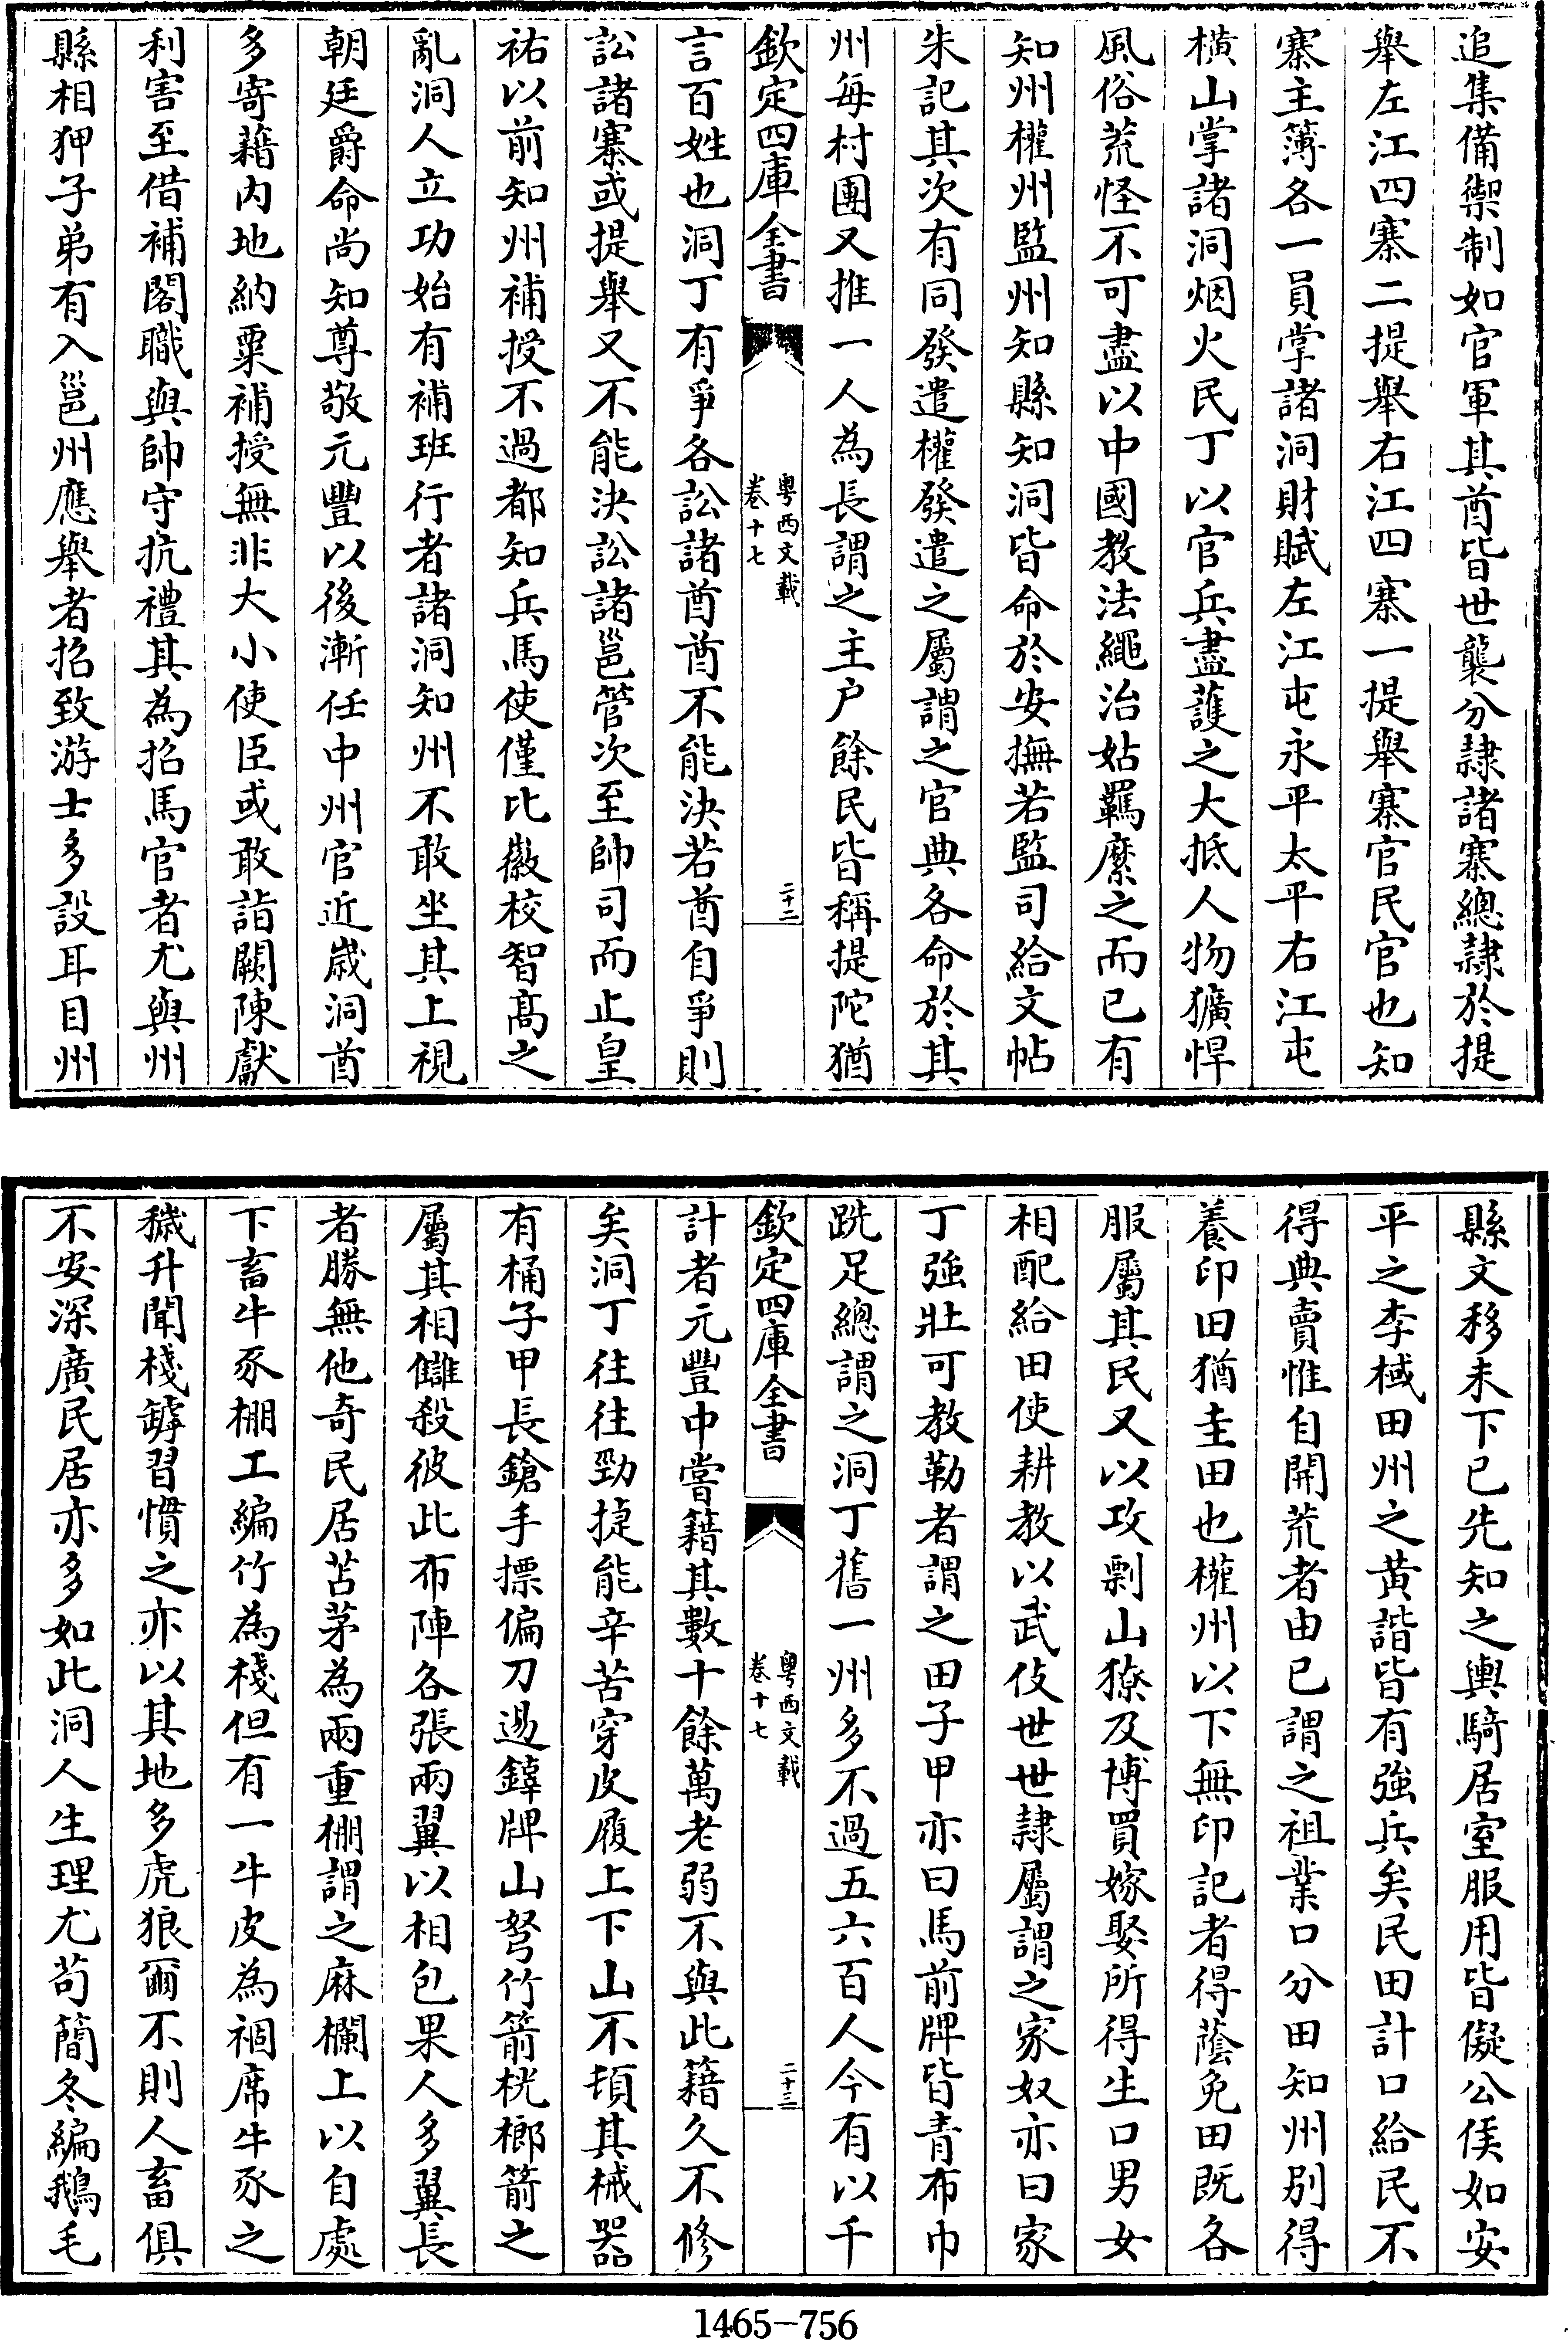 追集備禦制如官軍其酋皆世襲分隸諸寨總隸於提
舉左江四寨二提舉右江四寨一提舉寨官民官也知
寨主簿各一員掌諸洞財賦左江屯永平太平右江屯
橫山掌諸洞烟火民丁以官兵盡護之大抵人物獷悍
風俗荒怪不可盡以中國教法繩治姑羈縻之而已有
知州權州監州知縣知洞皆命於安撫若監司給文帖
朱記其次有同發遣權發遣之屬謂之官典各命於其
州每村團又推一人為長謂之主户餘民皆稱提陀猶
欽定四庫全書
粤西文載
卷十七
二十二
言百姓也洞丁有爭各訟諸酋酋不能決若酋自爭則
訟諸寨或提舉又不能決訟諸邕管次至帥司而止皇
祐以前知州補授不過都知兵馬使僅比徽校智高之
亂洞人立功始有補班行者諸洞知州不敢坐其上視
朝廷爵命尚知尊敬元豐以後漸任中州官近歲洞酋
多寄籍内地納粟補授無非大小使臣或敢詣闕陳獻
利害至借補閣職與帥守抗禮其為招馬官者尤與州
縣相狎子弟有入邕州應舉者招致游士多設耳目州
縣文移未下已先知之輿騎居室服用皆儗公侯如安
平之李棫田州之黄諧皆有強兵矣民田計口給民不
得典賣惟自開荒者由已謂之祖業口分田知州别得
養印田猶圭田也權州以下無印記者得蔭免田既各
服屬其民又以攻剽山獠及博買嫁娶所得生口男女
相配給田使耕教以武伎世世隸屬謂之家奴亦曰家
丁強壯可教勒者謂之田子甲亦曰馬前牌皆青布巾
跣足總謂之洞丁舊一州多不過五六百人今有以千
欽定四庫全書
粤西文載
卷十七
二十三
計者元豐中嘗籍其數十餘萬老弱不與此籍久不修
矣洞丁往往勁捷能辛苦穿皮履上下山不頓其械器
有桶子甲長鎗手摽偏刀逷鏲牌山弩竹箭桄榔箭之
屬其相讎殺彼此布陣各張兩翼以相包果人多翼長
者勝無他奇民居苫茅為兩重棚謂之麻欄上以自處
下畜牛豕棚工編竹為棧但有一牛皮為裀席牛豕之
穢升聞棧罅習慣之亦以其地多虎狼爾不則人畜俱
不安深廣民居亦多如此洞人生理尤苟簡冬編鵝毛
1465-756